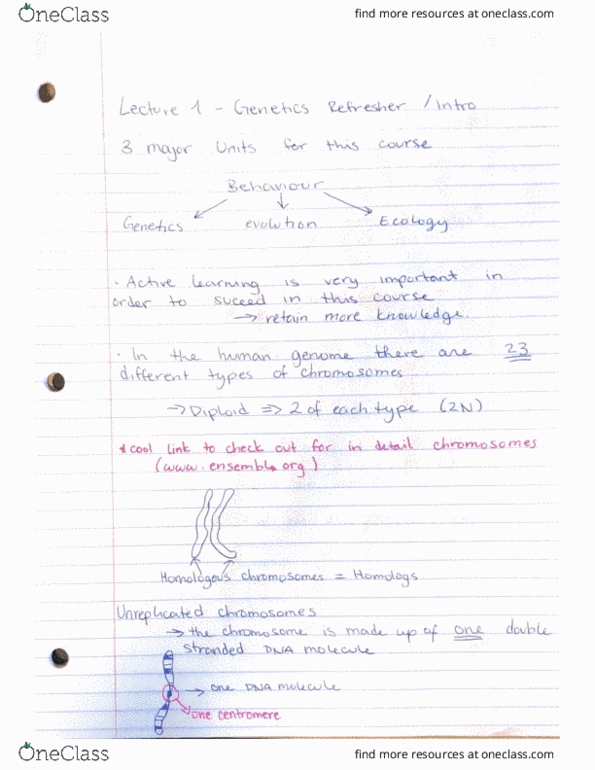 OneClass
find more resources at oneclass.com
Lecture 1 - Genetics Refresher / Intro
3 major Units for this course
Behaviour
Genetics evolution Ecology
· Active learning is very important in
order to suceed in this course
→ retain more knowledge.
· In the human genome there are 23
different types of chromosomes
→ Diploid => 2 of each type (2N)
* cool link to check out for in detail chromosomes
(www.ensembl.org)
Homologous chromosomes = Homologs
Unreplicated chromosomes
→ the chromosome is made up of one double
stranded DNA molecule
→ one DNA molecule
one centromere
OneClass
find more resources at oneclass.com